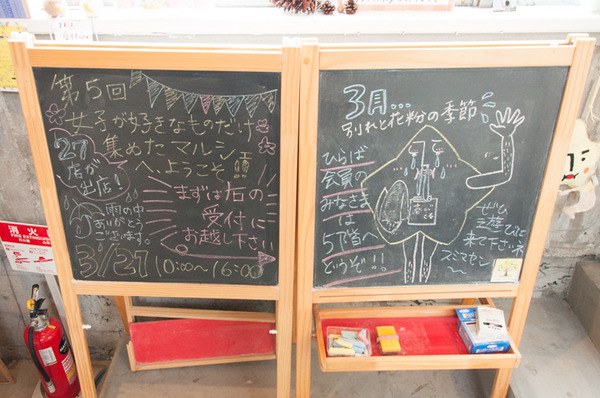 第5回
女子が好きなものだけ
集めたマルシェ
へ、ようこそ
27
店が
出店!
まずは右の
受付に
お越し下さい
雨の中
ありがとう
ございます。
3/27 10:00〜16:00
3月...
別れと花粉の季節
ひらば
会員の
みなさま
は
5階へ
どうぞ!!!
ぜひ
来て下さいネ
スミマセン
消火
FIRE EXTINGUISHER